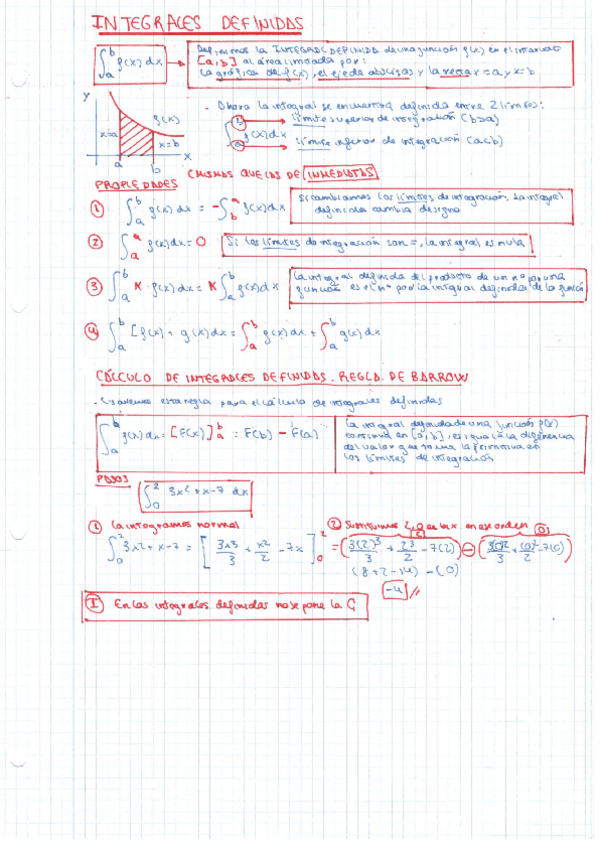 INTEGRALES DEFINIDAS
∫ₐᵇ f(x) dx
Definimos la INTEGRAL DEFINIDA de una función f(x) en el intervalo
[a,b] al área limitada por:
la gráfica de f(x), el eje de abscisas y la rectas x=a y x=b
y
f(x)
x=a
x=b
a b x
. Ahora la integral se encuentra definida entre 2 límites:
límite superior de integración (b>a)
∫ₐᵇ f(x) dx
límite inferior de integración (a<b)
PROPIEDADES (MISMAS QUE LAS DE INMEDIATAS)
① ∫ₐᵇ f(x) dx = -∫ᵇₐ f(x) dx
Si cambiamos los límites de integración, la integral
definida cambia de signo
② ∫ₐᵃ f(x) dx = 0
Si los límites de integración son =, la integral es nula
③ ∫ₐᵇ K · f(x) dx = K ∫ₐᵇ f(x) dx
La integral definida del producto de un nº por una
función es el nº por la integral definida de la función
④ ∫ₐᵇ [f(x) + g(x) dx = ∫ₐᵇ f(x) dx + ∫ₐᵇ g(x) dx
CÁLCULO DE INTEGRALES DEFINIDAS. REGLA DE BARROW
. Usaremos esta regla para el cálculo de integrales definidas
∫ₐᵇ f(x) dx = [F(x)]ₐᵇ = F(b) - F(a)
La integral definida de una función f(x)
continua en [a,b], es igual a la diferencia
del valor que toma la primitiva en
los límites de integración
PASOS
∫₀² 3x² + x - 7 dx
① La integramos normal
② Sustituimos 2, 0 en la x en ese orden
∫₀² 3x² + x - 7 = [3x³/3 + x²/2 - 7x]₀² = (3(2)³/3 + 2²/2 - 7(2)) - (3(0)³/3 + (0)²/2 - 7(0))
(8 + 2 - 14) - (0)
-4 //
① En las integrales definidas no se pone la C